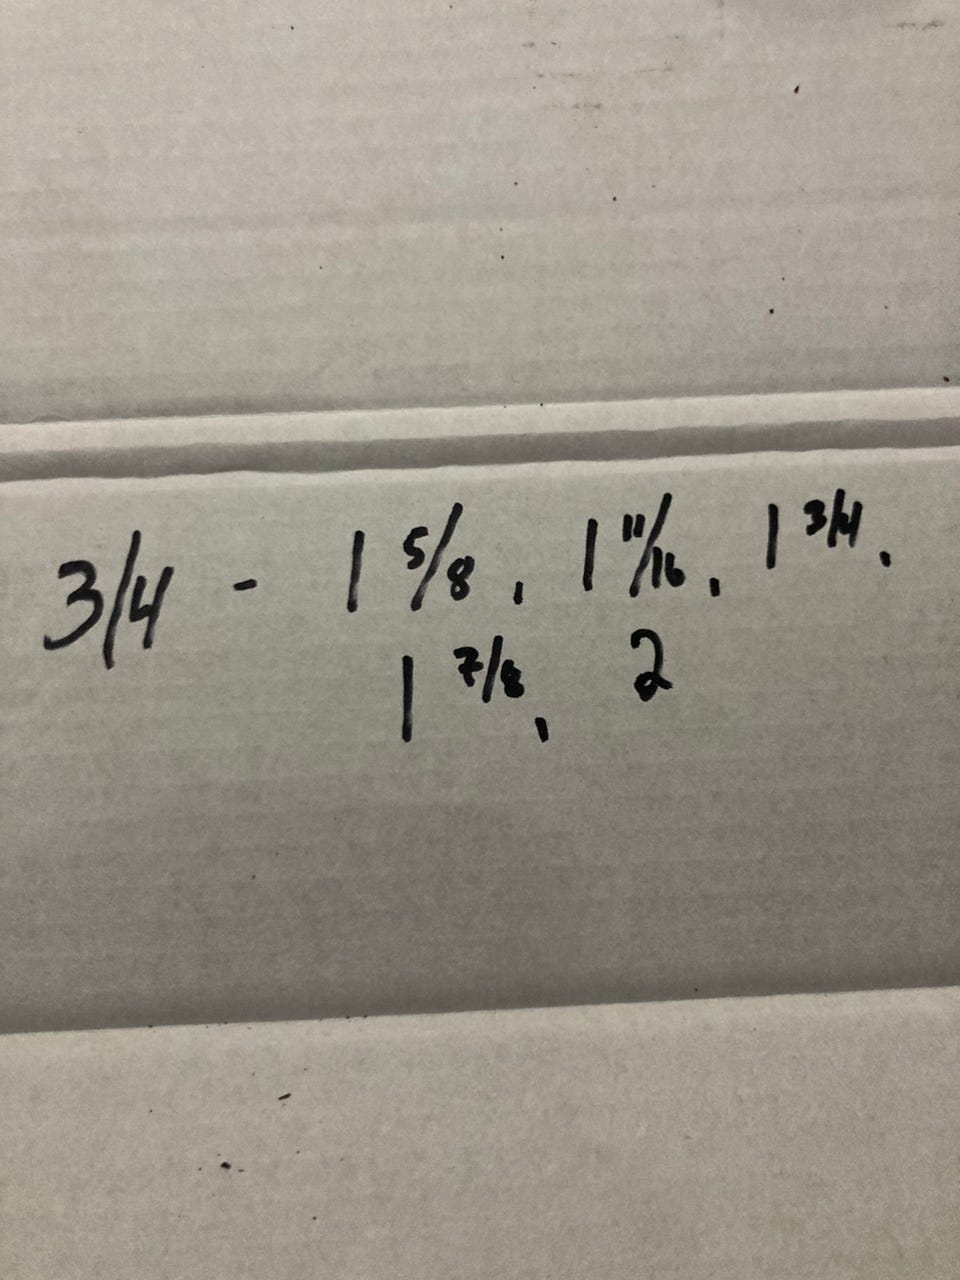 3/4 - 1 5/8, 1 11/16, 1 3/4,
1 7/8, 2